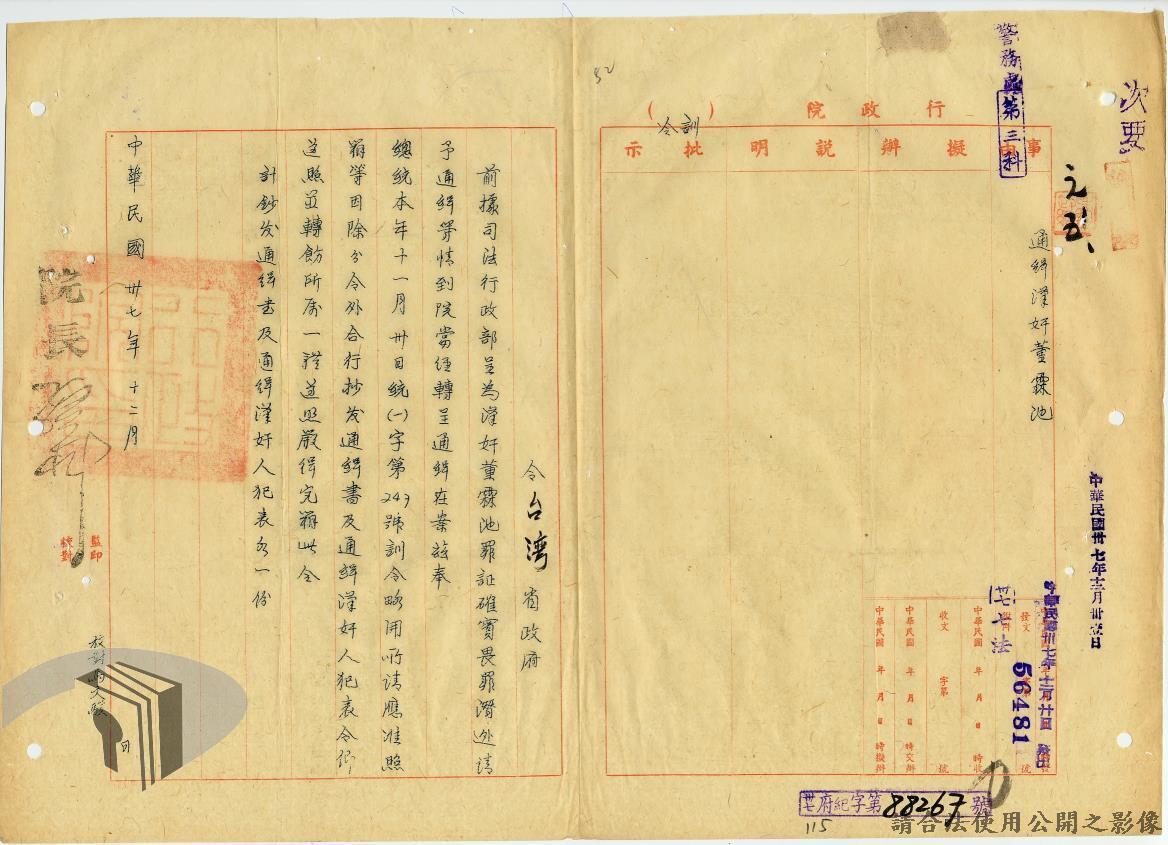 次要
警務處第三科
通緝漢奸董霖池
中華民國卅七年十二月卅壹日
行政院
(訓令)
事由
擬辦
說明
批示
中華民國卅七年十二月廿日發出
卅七法
56481
發文
中華民國 年 月 日 時收
收文 字第 號
中華民國 年 月 日 時交辦
中華民國 年 月 日 時擬辦
卅七府紀字第88267號
115
令台灣省政府
前據司法行政部呈為漢奸董霖池罪証確實畏罪潛逃請
予通緝等情到院當經轉呈通緝在案茲奉
總統本年十一月卅日統㈠字第243號訓令略開所請應准照
辦等因除分令外合行抄发通緝書及通緝漢奸人犯表令仰
遵照並轉飭所屬一體遵照嚴緝究辦此令
計鈔发通緝書及通緝漢奸人犯表各一份
中華民國卅七年十二月
院長
監印
校對
請合法使用公開之影像